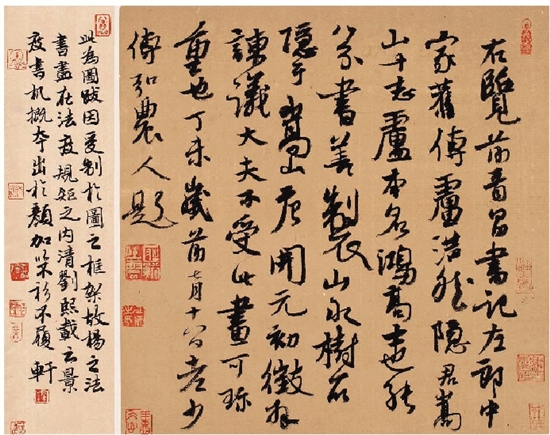 右覽前晉昌書記左郎中
家舊傳盧浩然隱君嵩
山十志盧本名鴻高士也能
八分書善製山水樹石
隱于嵩山唐開元初徵拜
諫議大夫不受此畫可珍
重也丁未歲前七月十八日老少
傅弘農人題
此為圖跋因受制於圖之框架故楊之法
書盡在法度規矩之內清劉熙載云景
度書机本出於顏加不衫不履 軒